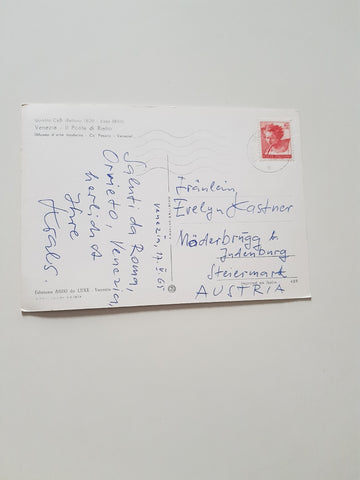 Guglielmo Ciardi
Venezia - Il Ponte di Rialto
(Museo d'arte moderna - Ca' Pesaro - Venezia)
Venezia, 17.V.65
Saluti da Roma,
Orvieto, Venezia,
herzlichst
Ihre
Fräulein
Evelyn Kastner
Möderbrugg b.
Judenburg
Steiermark
AUSTRIA
Edizione ARDO da LUXE - Venezia